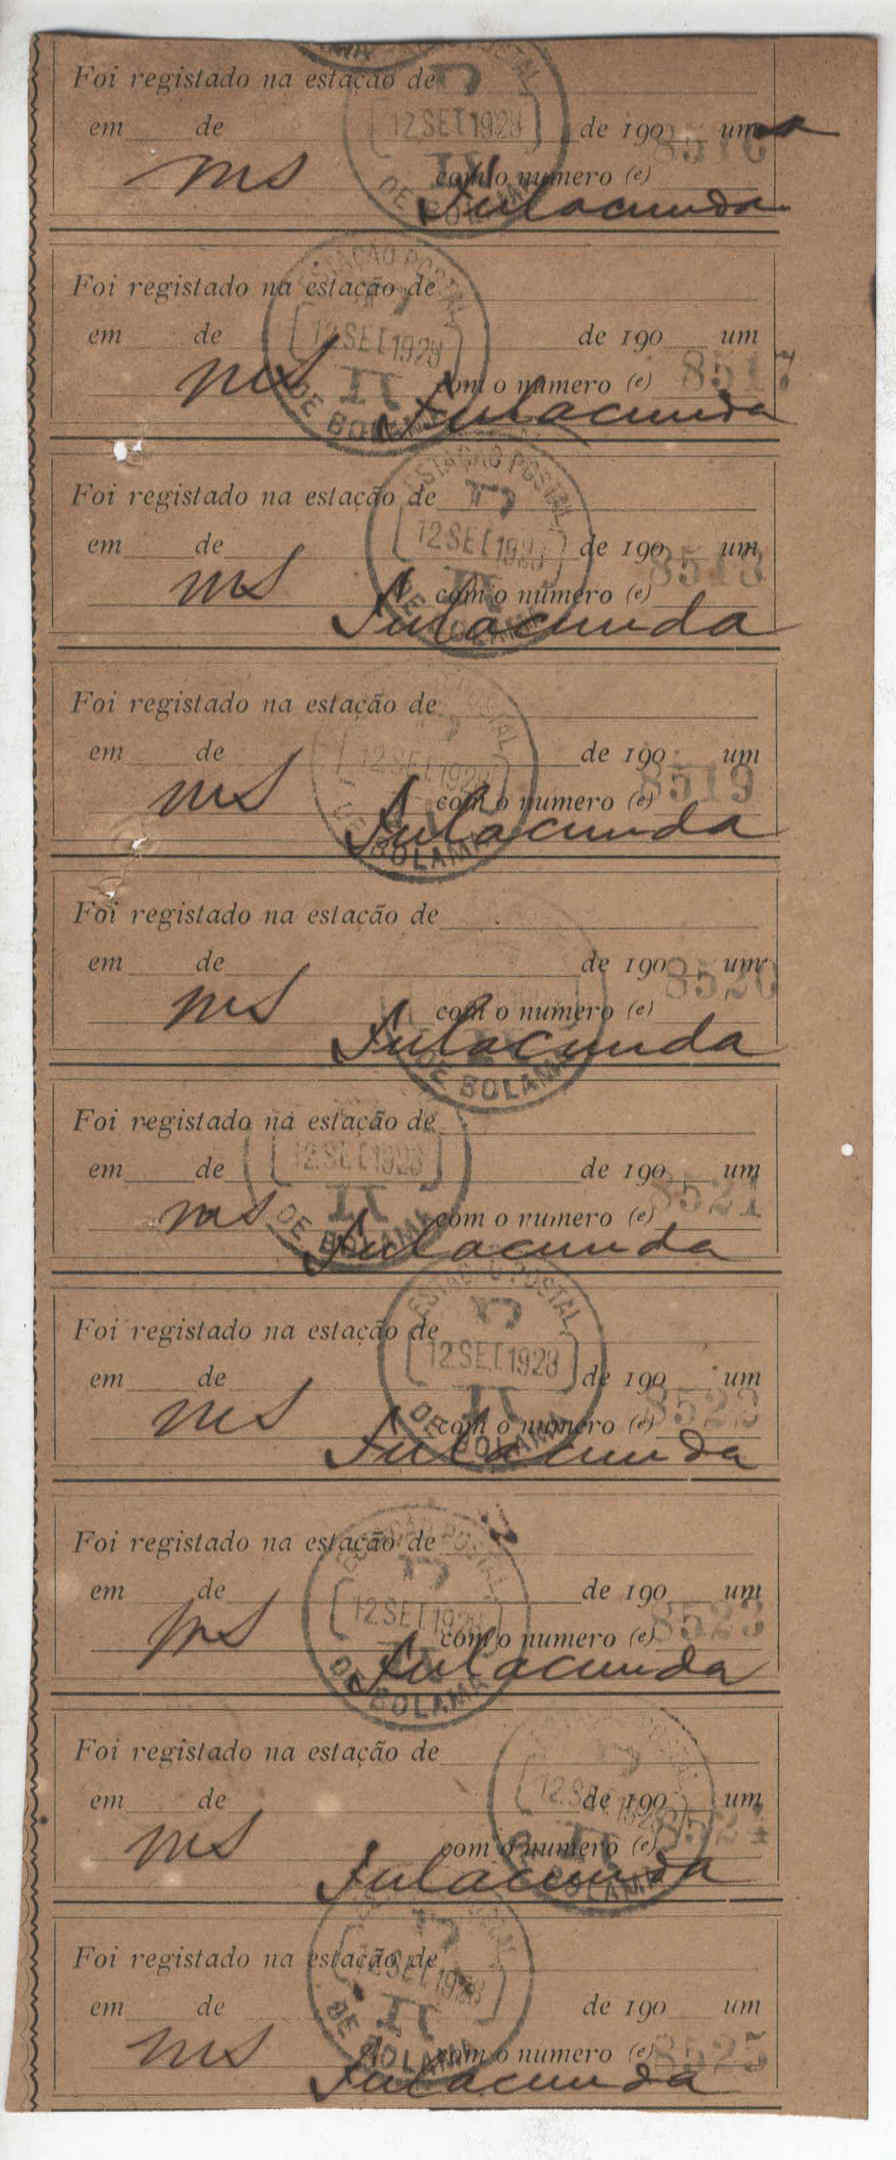 Foi registado na estação de
em de 12 SET 1928 de 190 um
8516
ms com o numero (e)
DE BOLAMA
Fulacunda
ESTAÇÃO POSTAL
Foi registado na estação de
em de 12 SET 1928 de 190 um
ms com o numero (e) 8517
DE BOLAMA
Fulacunda
ESTAÇÃO POSTAL
Foi registado na estação de
em de 12 SET 1928 de 190 um
8518
ms com o numero (e)
DE BOLAMA
Fulacunda
Foi registado na estação de
em de 12 SET 1928 de 190 um
8519
ms com o numero (e)
DE BOLAMA
Fulacunda
Foi registado na estação de
em de de 190 um
8520
ms com o numero (e)
Fulacunda
DE BOLAMA
Foi registado na estação de
em de 12 SET 1928 de 190 um
8521
ms com o numero (e)
DE BOLAMA
Fulacunda
ESTAÇÃO POSTAL
Foi registado na estação de
em de 12 SET 1928 de 190 um
8522
ms com o numero (e)
DE BOLAMA
Fulacunda
ESTAÇÃO POSTAL
Foi registado na estação de
em de 12 SET 1928 de 190 um
8523
ms com o numero (e)
Fulacunda
DE BOLAMA
Foi registado na estação de
em de 12 SET 1928 de 190 um
8524
ms com o numero (e)
Fulacunda
DE BOLAMA
Foi registado na estação de
12 SET 1928
em de de 190 um
ms com o numero (e) 8525
DE BOLAMA
Fulacunda